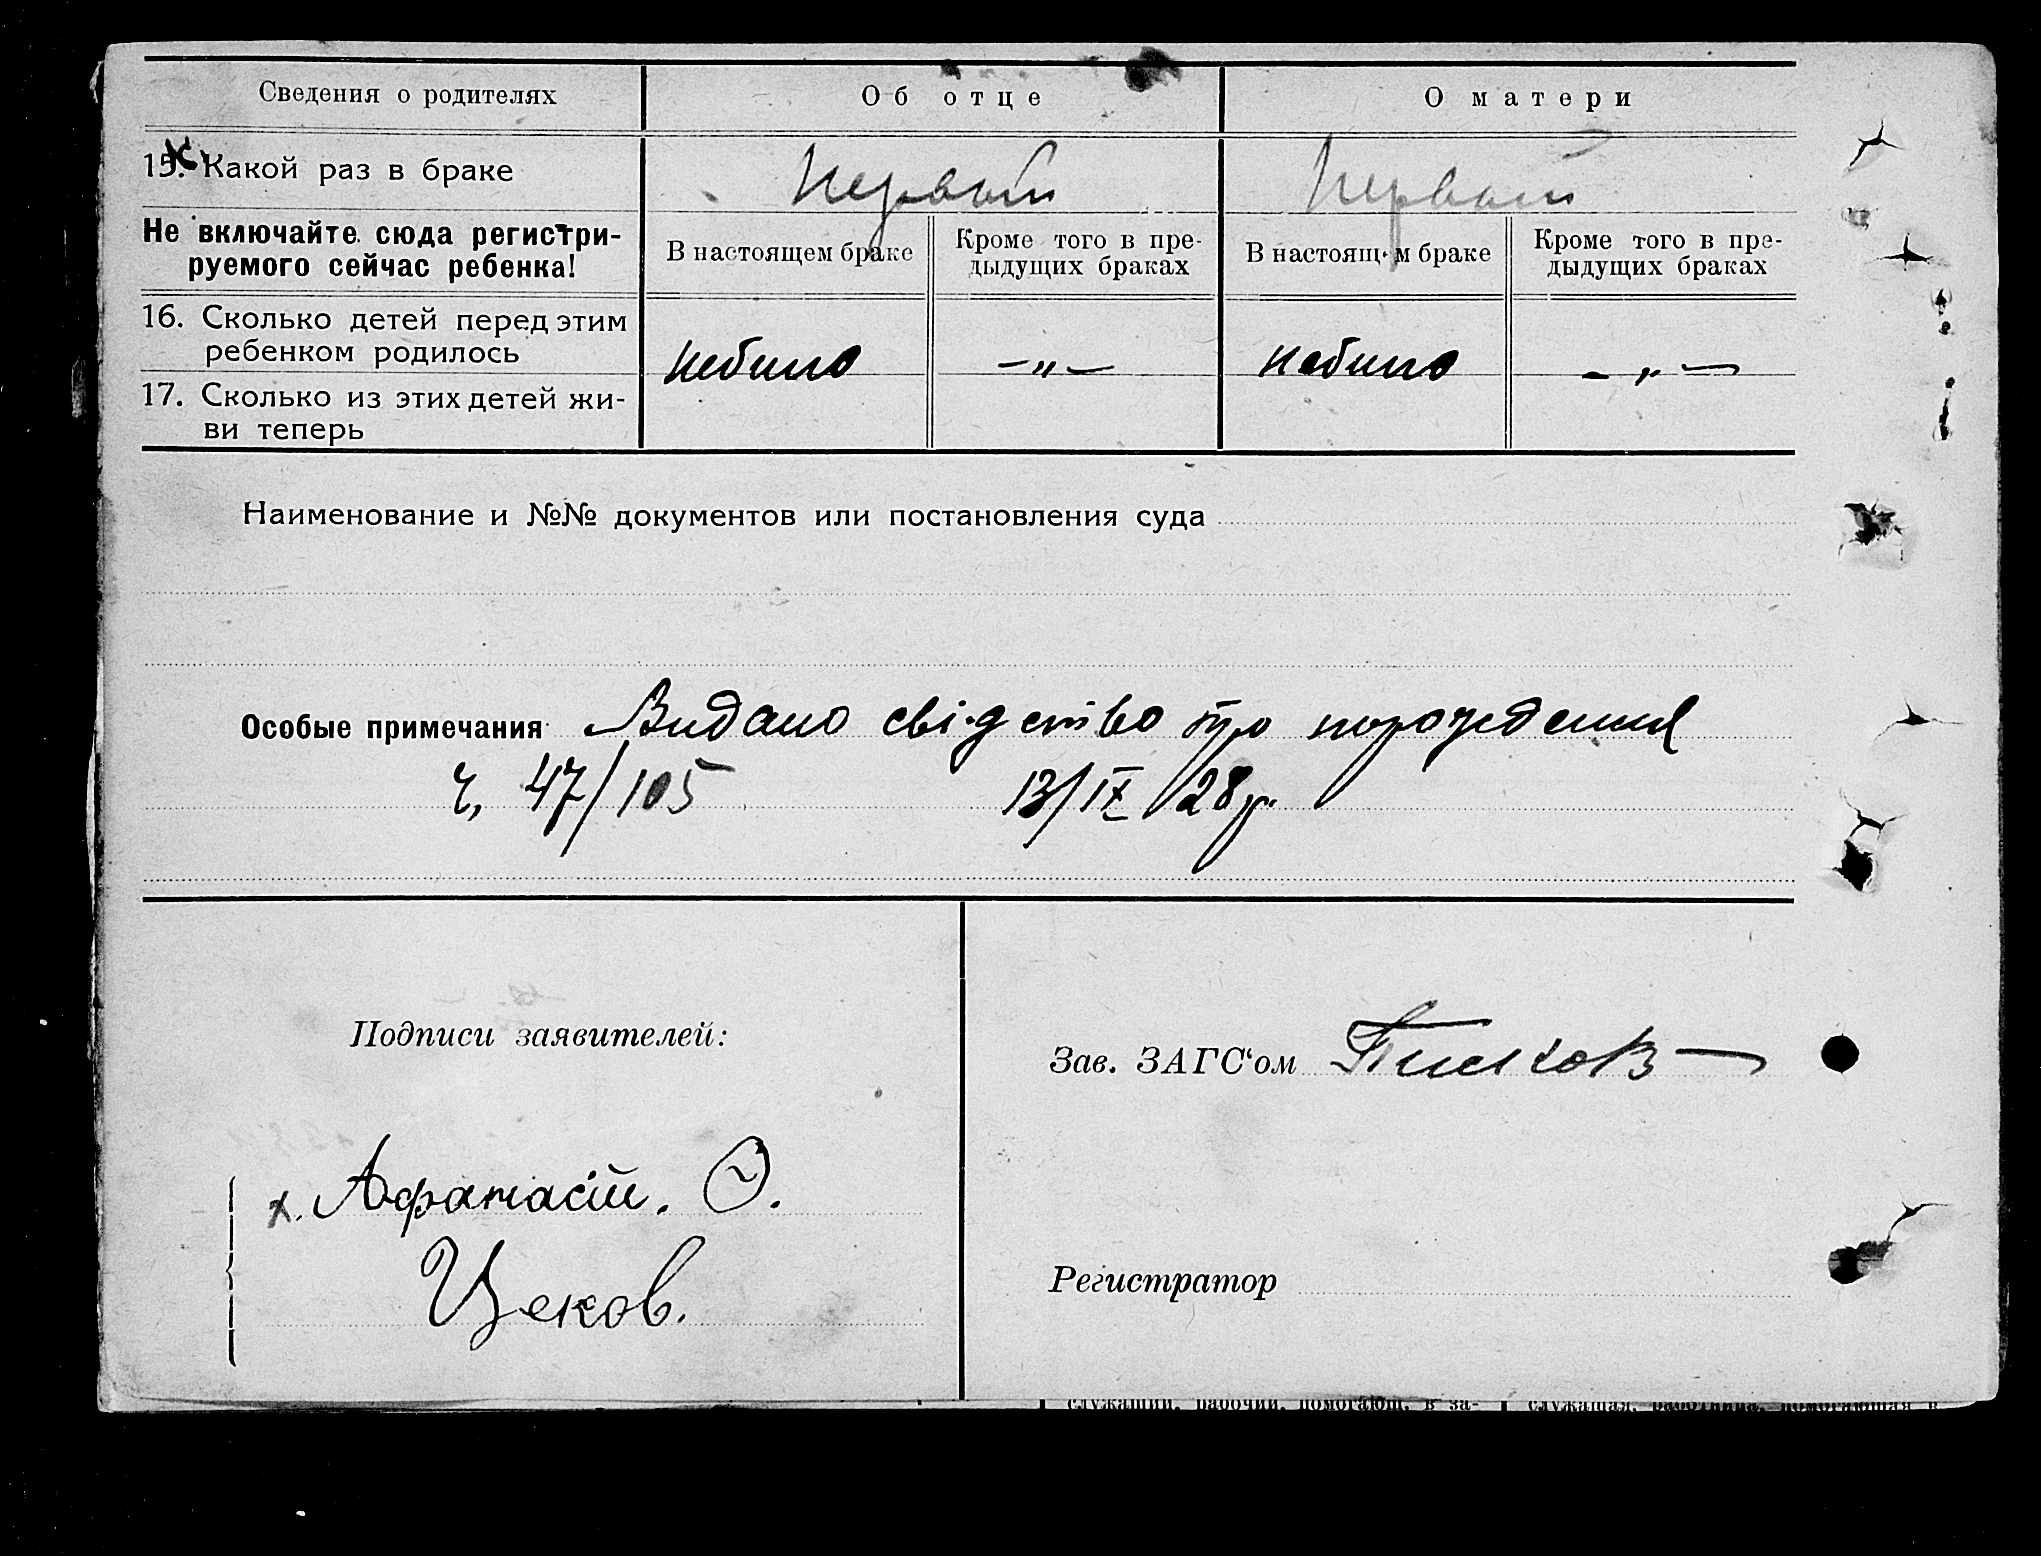 Сведения о родителях
Об отце
О матери
15. Какой раз в браке
Первый
Первый
Не включайте сюда регистри-
руемого сейчас ребенка!
В настоящем браке
Кроме того в пре-
дыдущих браках
В настоящем браке
Кроме того в пре-
дыдущих браках
16. Сколько детей перед этим
ребенком родилось
небуло
–„–
небуло
–„–
17. Сколько из этих детей жи-
ви теперь
Наименование и №№ документов или постановления суда
Особые примечания Видано свідство про порождения
ч, 47/105 13/IX 28 р.
Подписи заявителей:
Зав. ЗАГС‘ом
х. Афанасій. Ѳ.
Цеков.
Регистратор
служащий, рабочий, помогающ. в за-
служащая, работница, помогающая в